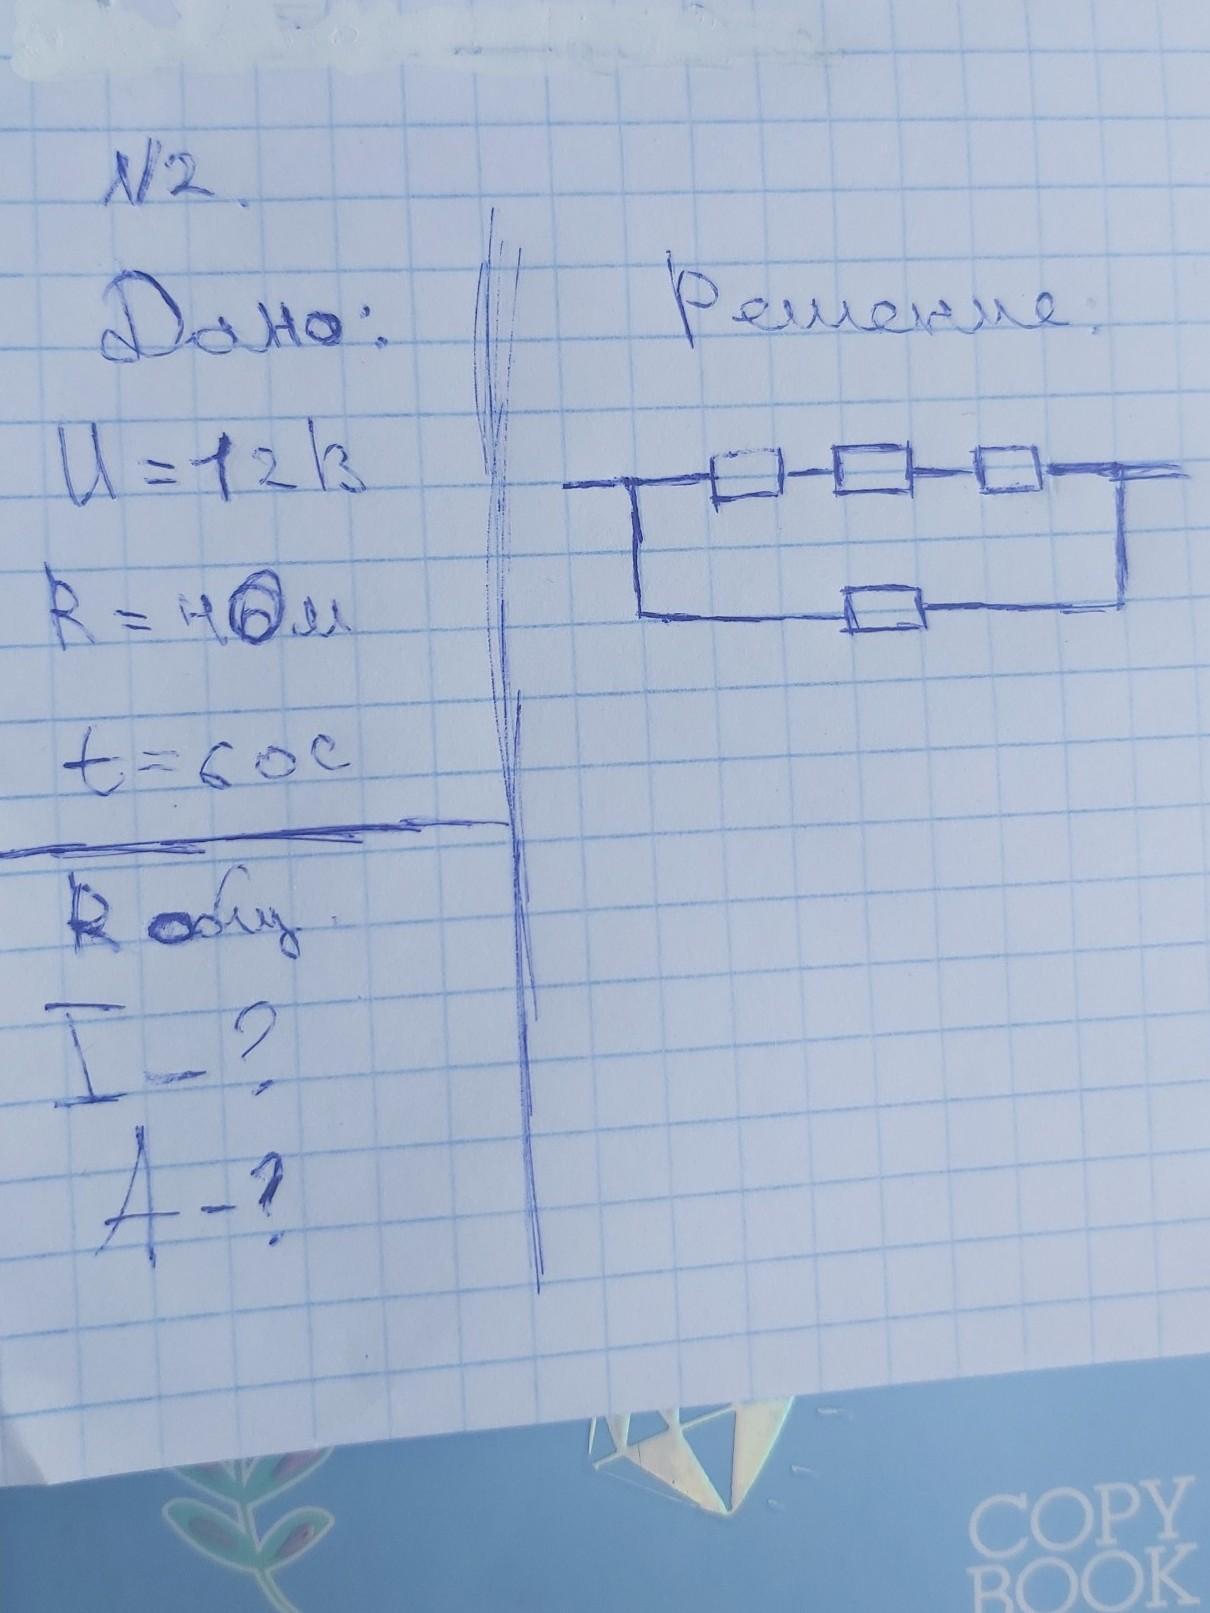 N2.
Дано:
U = 12 В
R = 4 Ом
t = 60 с
R общ.
I - ?
A - ?
Решение:
COPY
BOOK